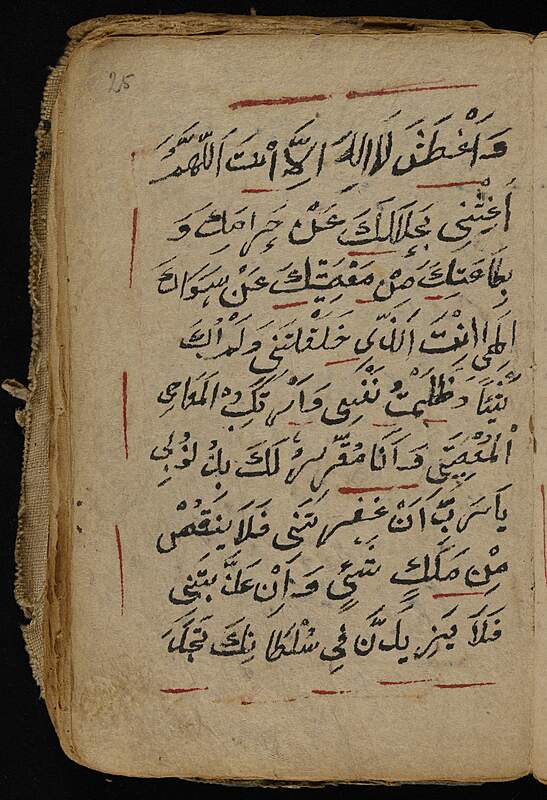 25
لَا اِلٰهَ اِلَّا اَنْتَ اَللّٰهُمَّ
اَغْنِنِي بِحَلَالِكَ عَنْ حَرَامِكَ وَ
بِطَاعَتِكَ مِنْ مَعْصِيَتِكَ عَنْ سِوَاكَ
اِلٰهِي اَنْتَ الَّذِي خَلَقْتَنِي وَلَمْ اَكُ
وَظَلَمْتُ نَفْسِي وَاَرْتَكَبْتُ الْمَعَاصِي
وَاَنَا مُقِرٌّ لَكَ بِذُنُوبِي
يَا رَبِّ اَنْ غَفَرْتَنِي فَلَا يَنْقُصُ
مِنْ مُلْكِكَ شَيْئٍ وَاِنْ عَذَّبْتَنِي
فَلَا يَزِيدَنَّ فِي سُلْطَانِكَ تَجِدُ